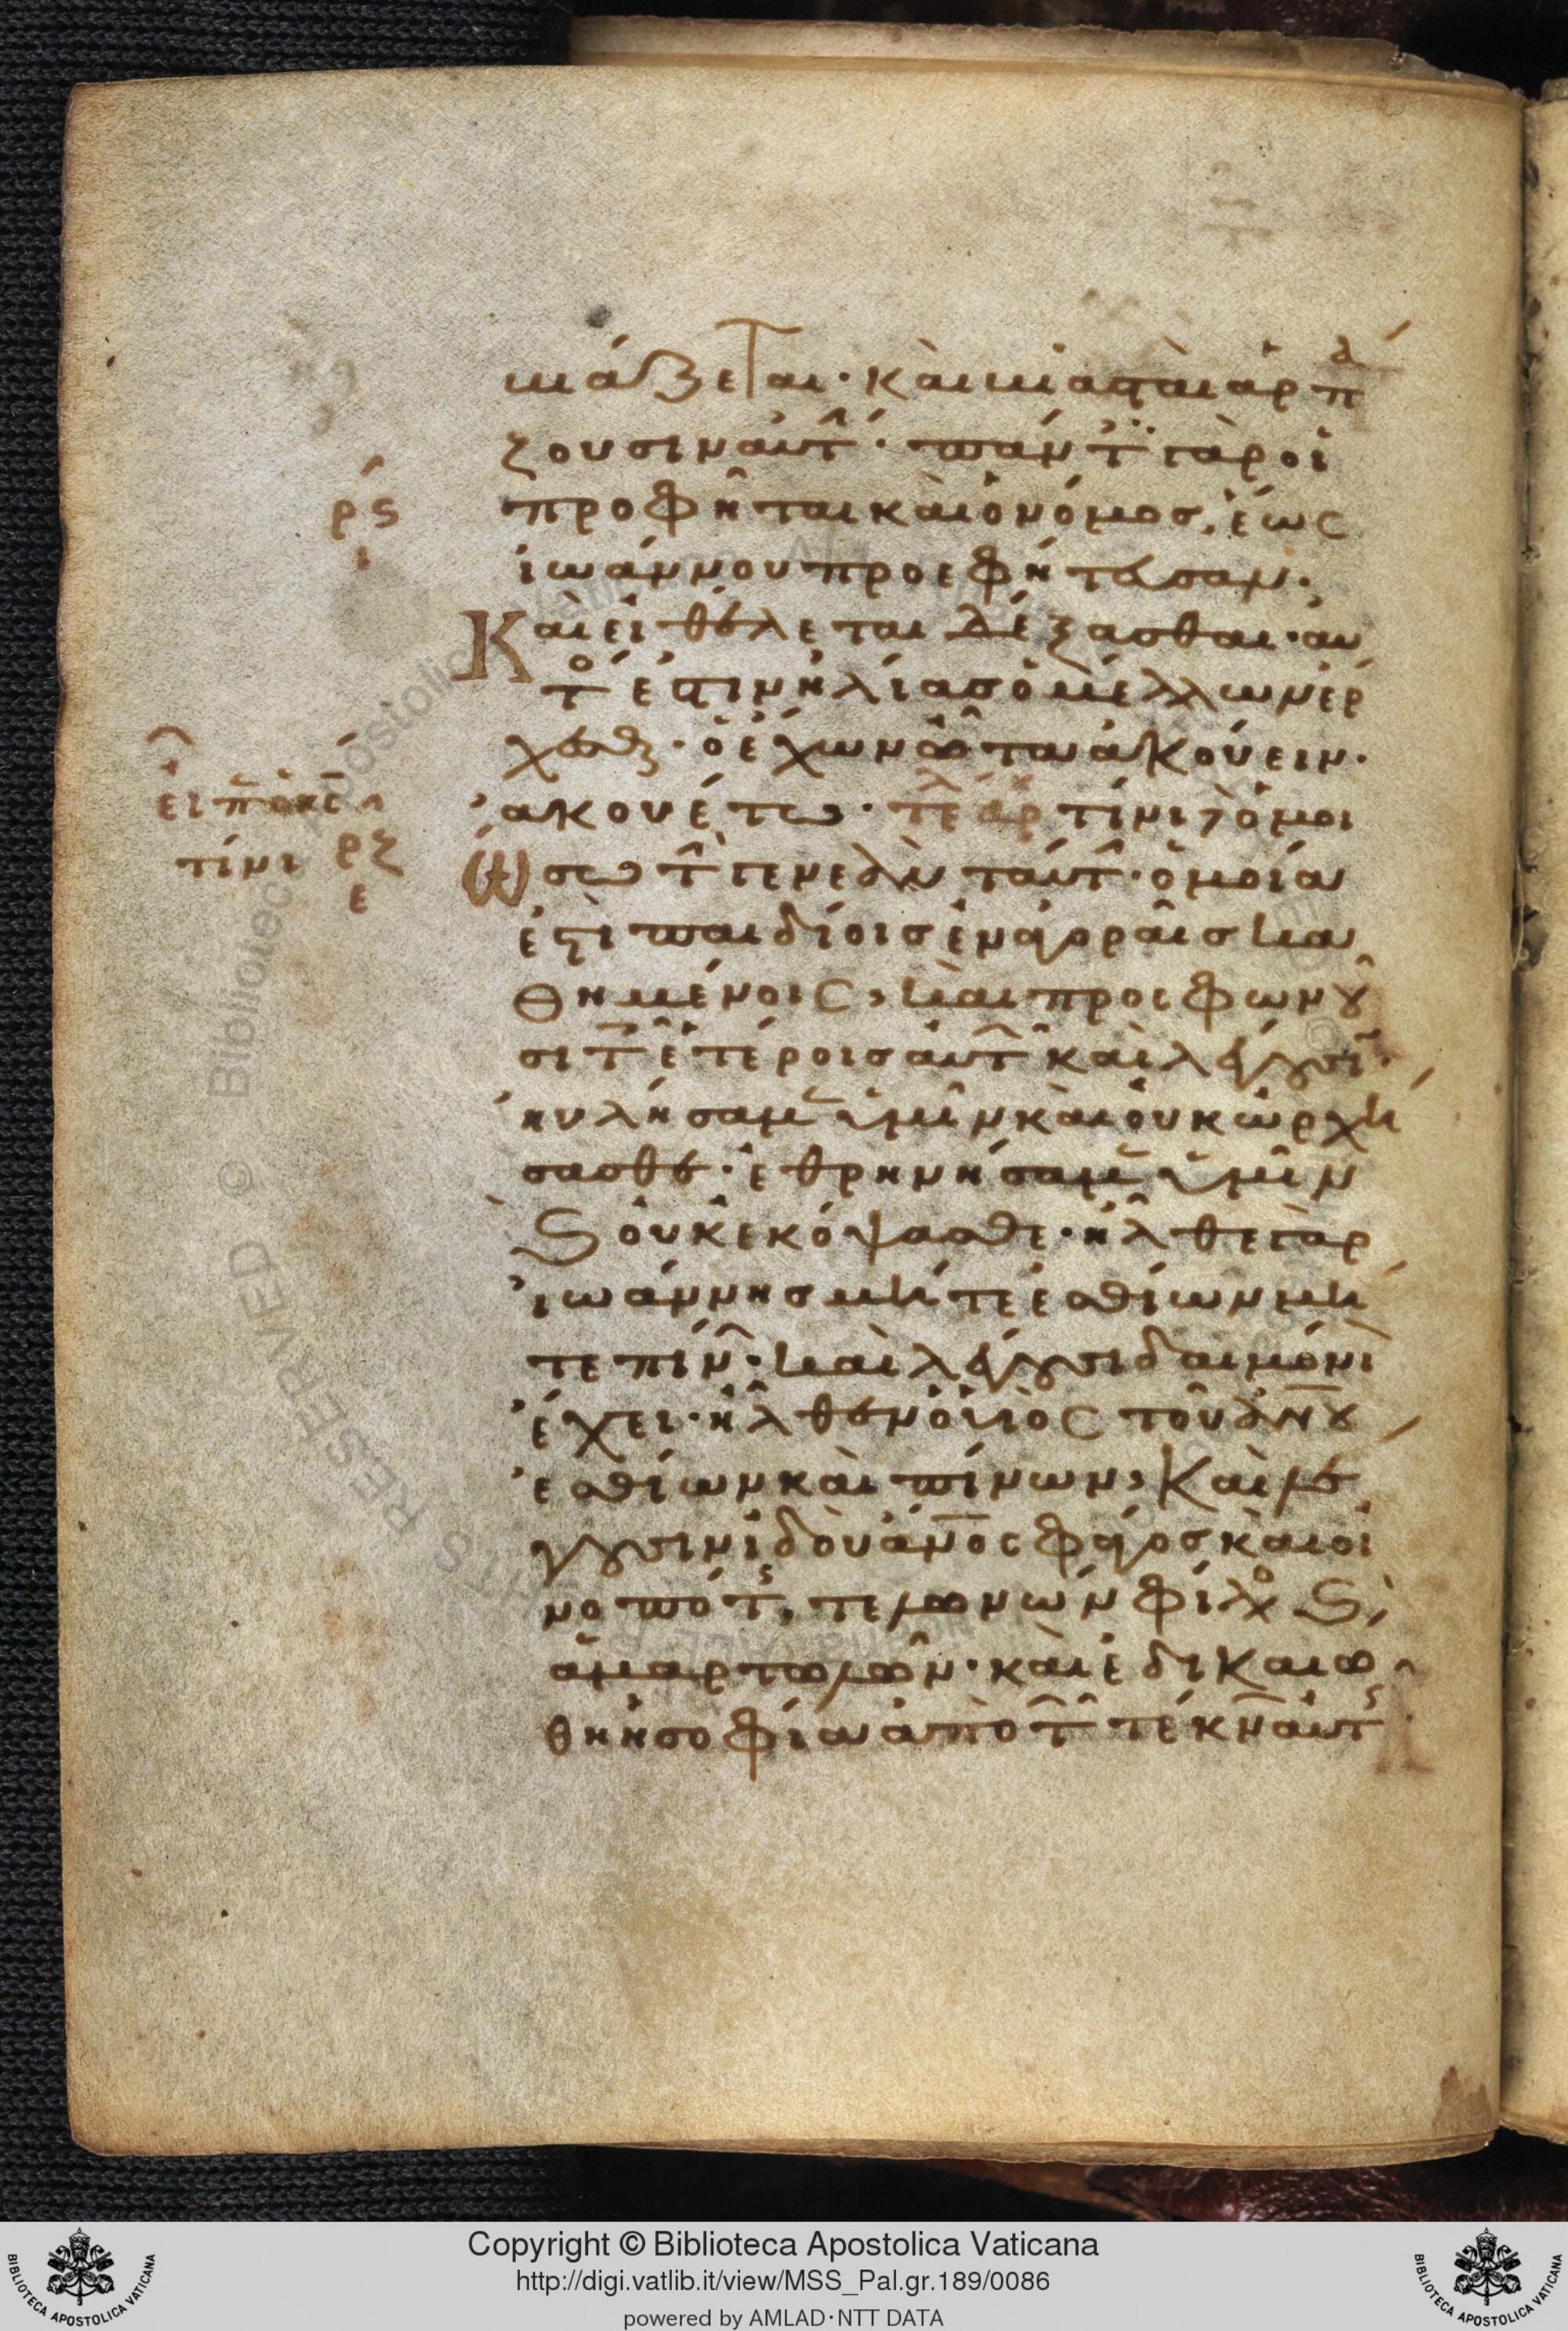 ιάζεται· καὶ βιασταὶ ἁρπ
ζουσιν αὐτ· πάντ γὰρ οἱ
ρϛ προφῆται καὶ ὁ νόμος, ἕως
ι ἰωάννου προεφήτευσαν·
Καὶ εἰ θέλεται δέξασθαι· αυ
τ ἐστιν ἡλίας ὁ μέλλων ἔρ
χεσθαι· ὁ ἔχων ὦτα ἀκούειν·
ἀκουέτω· τε αρ τίνι δὲ ὁμοι
ει π ὁ κς
τίνι ρζ
ε
ώσω τ γενεὰν ταύτ· ὁμοία
ἐστὶ παιδίοις ἐν ἀγοραῖς κα
θημένοις, καὶ προσφωνοῦ
σι τ ἑτέροις αὐτ καὶ λέγουσι·
ηὐλήσαμ ὑμῖν καὶ οὐκ ὠρχή
σασθε· ἐθρηνήσαμ ὑμῖν
ϗ οὐκ ἐκόψασθε· ἦλθε γὰρ
ἰωάννης μήτε ἐσθίων μή
τε πίν· καὶ λέγουσι δαιμόνι
ἔχει· ἦλθεν ὁ υἱὸς τοῦ ανου
ἐσθίων καὶ πίνων, Καὶ λέ
γουσιν ἰδοὺ ανος φάγος καὶ οἰ
νοπότ, τελωνῶν φίλο ϗ
ἁμαρτωλῶν· καὶ ἐδικαιώ
θη ἡ σοφία ἀπὸ τ τέκν αὐτ
Copyright © Biblioteca Apostolica Vaticana
http://digi.vatlib.it/view/MSS_Pal.gr.189/0086
powered by AMLAD·NTT DATA
BIBLIOTECA APOSTOLICA VATICANA
BIBLIOTECA APOSTOLICA VATICANA